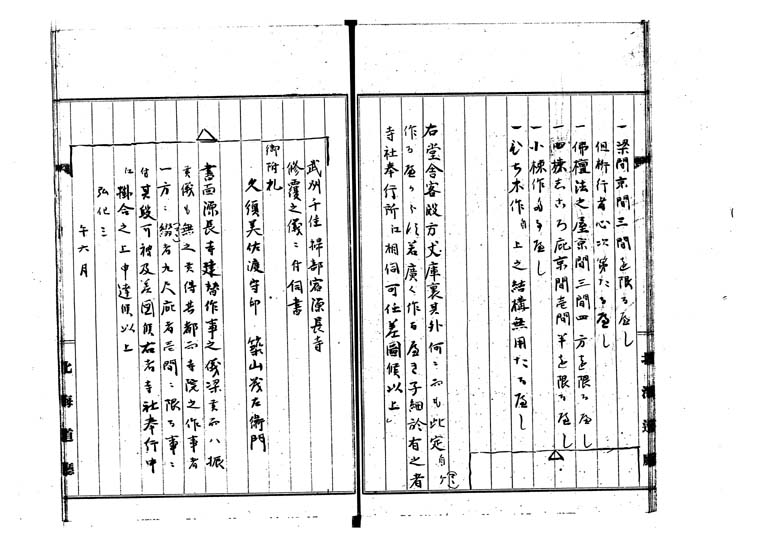 一梁間京間三間を限るべし
但桁行者心次第たるべし
一佛檀法之屋京間三間四方を限るべし
一四方志ころ庇京間壱間半を限るべし
一小棟作たるべし
一ひぢ木作より上之結構無用たるべし
右堂舎客殿方丈庫裏其外何ニ而も此定より
作るべからす若廣く作るべき子細於有之者
寺社奉行所江相伺可任差圖候以上」
武州千住掃部宿源長寺
修覆之儀ニ付伺書
御附札
久須美佐渡守印 築山茂左衛門
書面源長寺建替作事之儀梁間ハ振
之儀も無之候得共都而寺院之作事者
一方ニ綴者九尺庇者三間ニ限る事ニ
付其段可被及差圖候右者寺社奉行中
江掛合之上申達候以上
弘化三
午六月
北海道廳
北海道廳